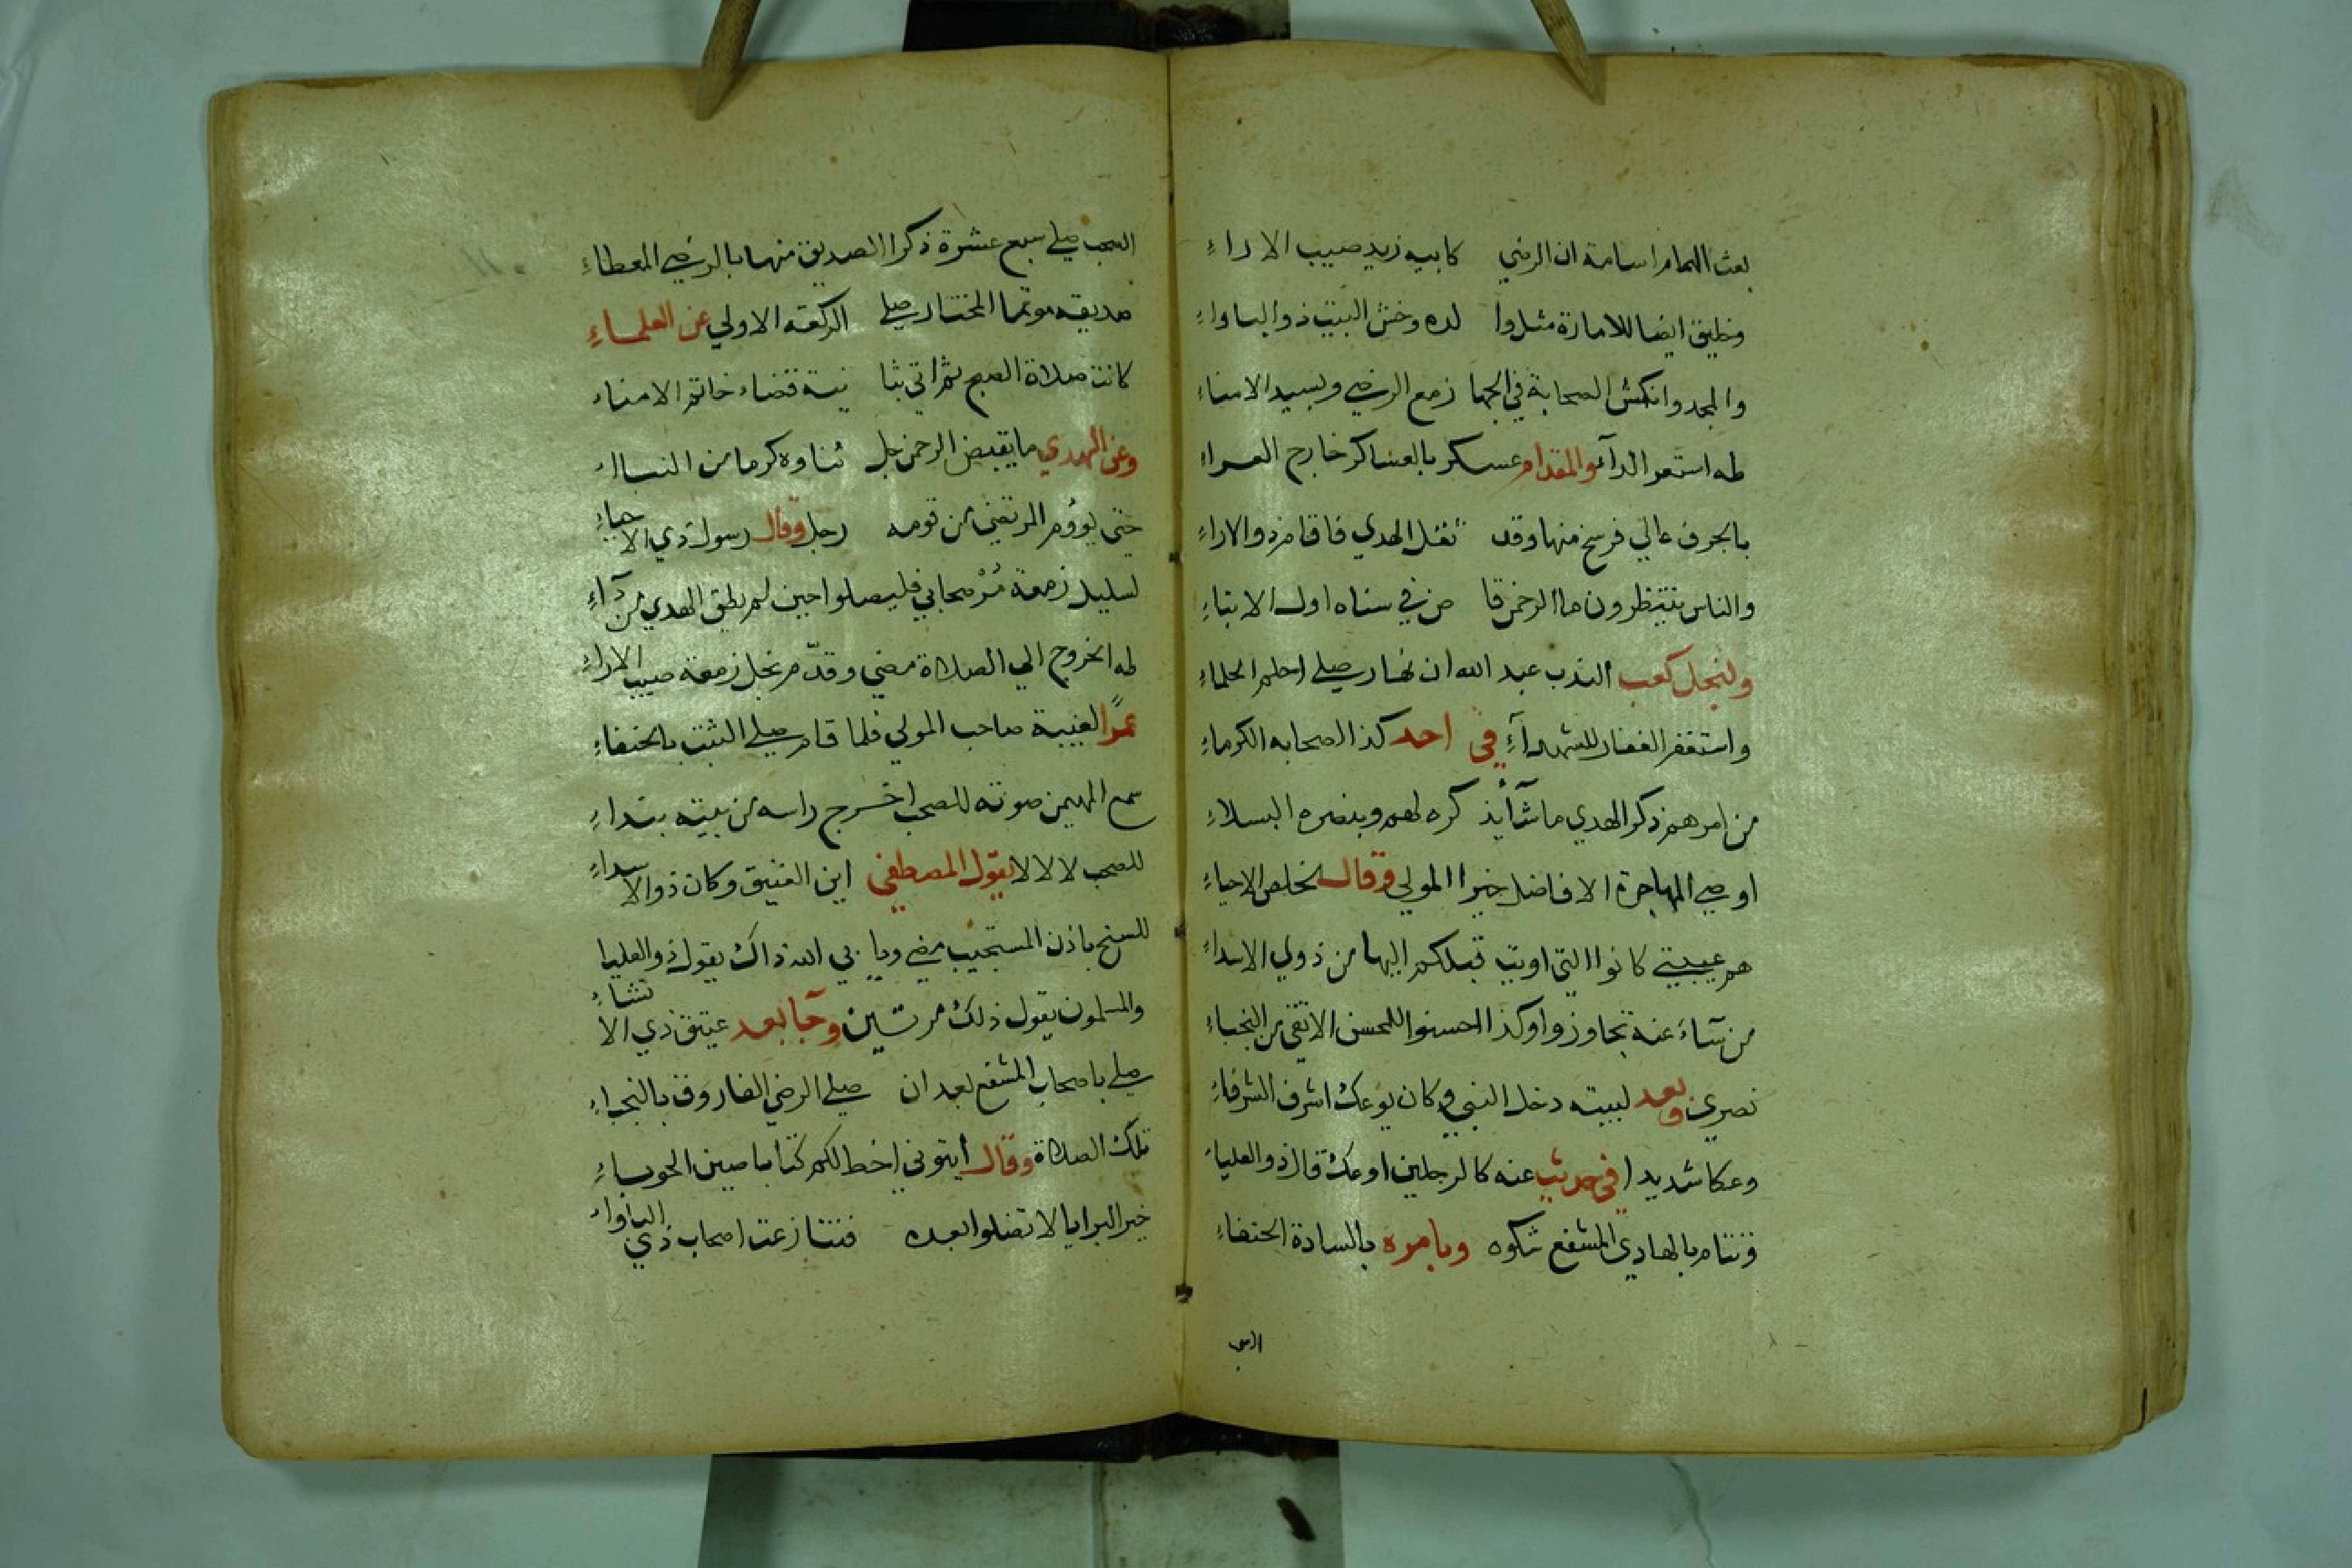 بعث الهمام اسامة ان الرضي كابيه زيد صبيب الاراءِ
وخليق ايضا للامارة مثلوا لده وخش البيت ذو الباواءِ
والمجد وانكش الصحابة في الجها زمع الرضي ولسيد الامناءِ
طه استعر الدآء والمقدام عسكر بالعساكر خارج العراءِ
بالجرف عالي فرسخ منها وقد ثقل الهدي فاقام ذو الاراءِ
والناس ينتظرون ما الرحمن قا ض في سناه اول الانباءِ
ولنجل كعب الندب عبد الله ان نهار صلي احلم الحلماءِ
واستغفر الغفار للشهدآءِ في احد كذا الصحابه الكرماءِ
من امرهم ذكر الهدي ما شآء اذ كره لهم وبنصره البسلاءِ
اوصي المهاجرة الافاضل خيرا المولي وقال لخلص الاحياءِ
هم عيبتي كانوا التي اويت قبلكم اليها من ذوي الاسداءِ
من سآءَ عنه تجاوزوا وكذا احسنوا للمحسن الاتقي من النجباءِ
نصري وبعد لبيته دخل النبي وكان يوعك اشرف الشرفاءِ
وعكا شديدا في حديث عنه كالرجلين اوعك قال ذو العلياءِ
فتنام بالهادي المشفع شكوه وبامره بالسادة الحنفاءِ
الصحب
الصحب صلي سبع عشرة ذكرا الصديق منها بالرضي المعطاءِ
صديقه موتما المختار صلي الركعة الاولي عن العلماءِ
كانت صلاة الصبح ثم اتي بثا نية قضاء خاتم الامناء
وعن الهدي ما يقبض الرحمن جل ثناوه كرما من النباء
حتي يوؤم المرتضي من قومه رجل وقال رسول ذي الاحباءِ
لسليل زمعة مُرْ صحابي فليصلوا حين لم يطق الهدي من دآءِ
طه الخروج الي الصلاة مضي وقدّم نجل زمعة صبيب الاراءِ
عمرًا لغيبة صاحب المولي فلما قام صلي الثبت بالحنفاءِ
سمع المهيمن صوته للصحب اخرج راسه من بيته بنداءِ
للصحب لا لا لا يقول المصطفي اين العتيق وكان ذو الاسداءِ
للسنح باذن المستجيب مضي ويا بي الله ذاك يقول ذو العليا
والمسلمون يقول ذلك مرتين وجآ بعد عتيق ذي الانشاءِ
صلي باصحاب المشفع بعد ان صلي الرضي الفاروق بالنجباءِ
تلك الصلاة وقال ايتوني اخط لكم كتابا صين الحوباءِ
خير البرايا لا تضلوا بعده فتنازعت اصحاب ذي الباواء